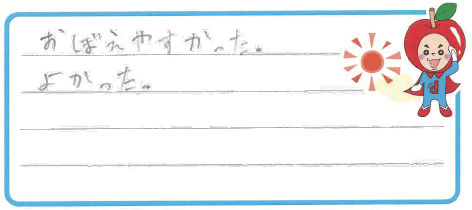 おぼえやすかった。
よかった。